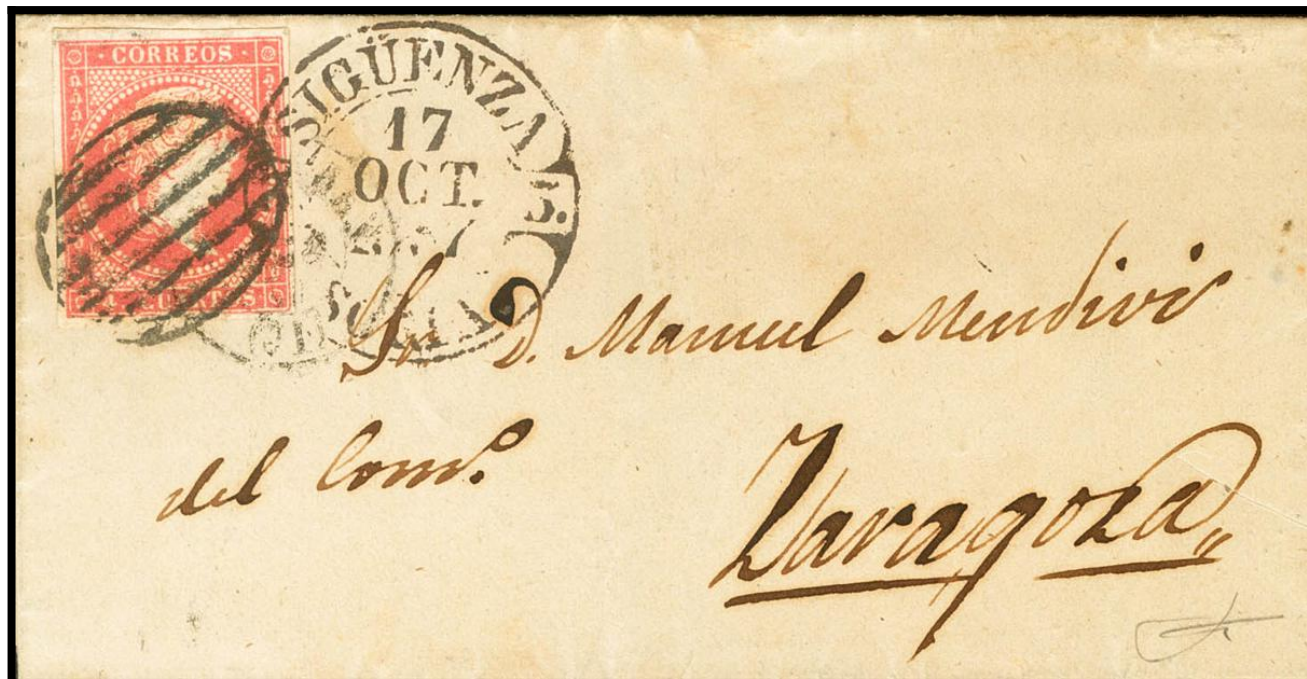 CORREOS
SIGÜENZA
17
OCT.
Sor D. Manuel Mendivi
del Comº.
Zaragoza